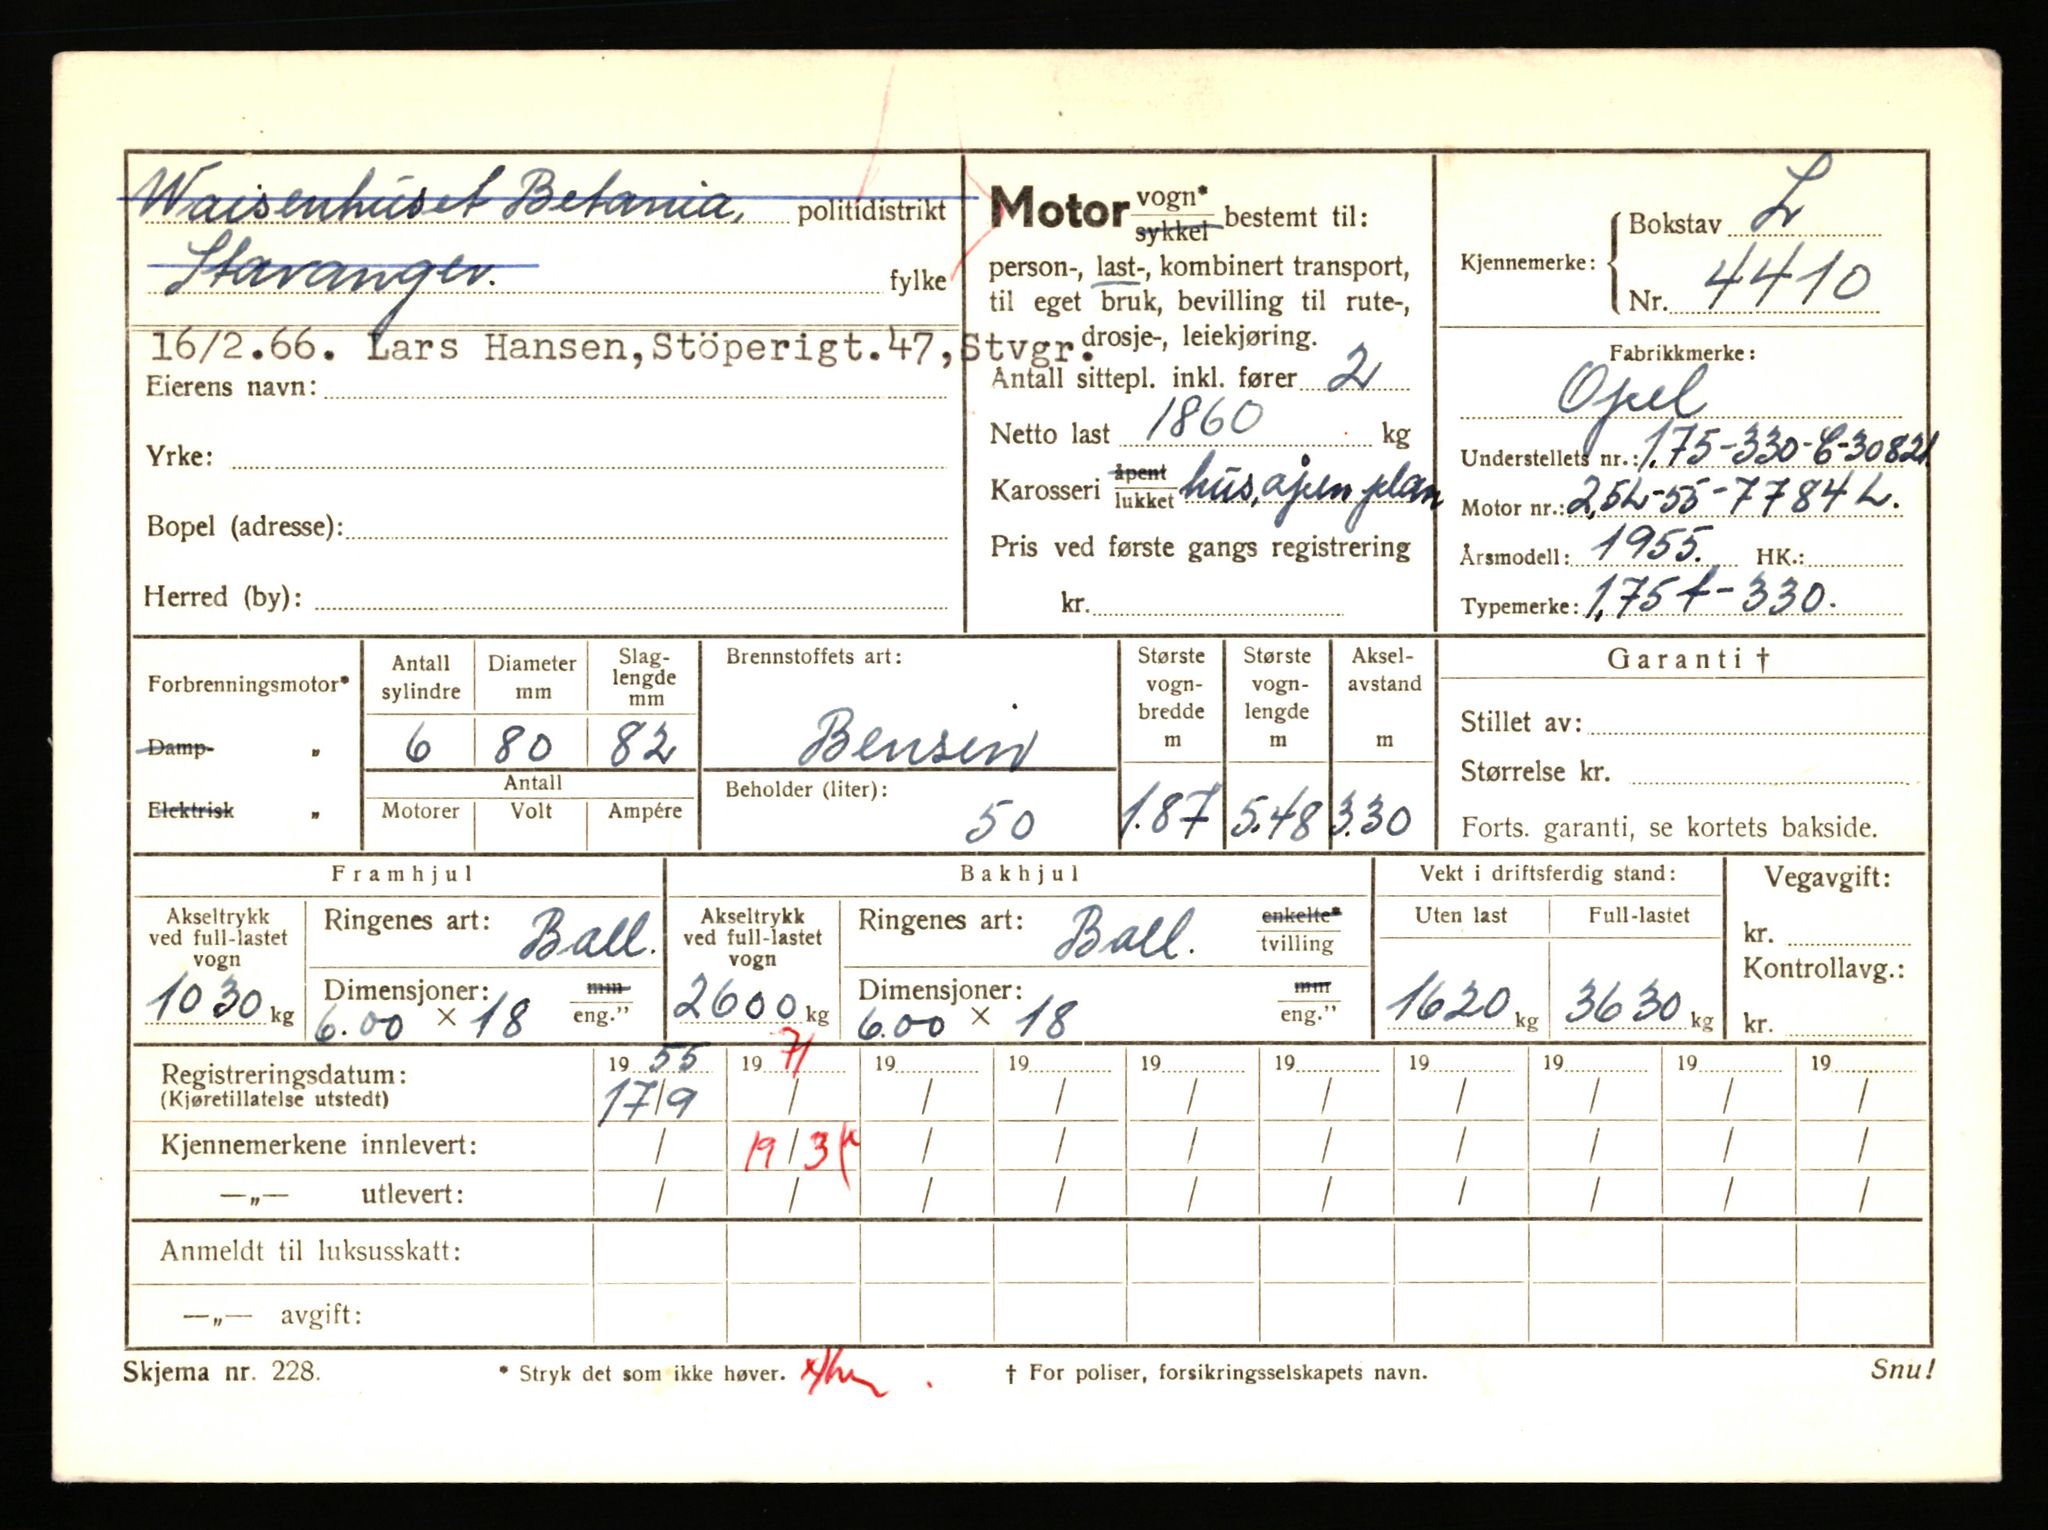 Waisenhuset Betania, politidistrikt
Stavanger. fylke
16/2.66. Lars Hansen, Stöperigt.47, Stvgr.
Eierens navn:
Yrke:
Bopel (adresse):
Herred (by):
Motor vogn* sykkel bestemt til:
person-, last-, kombinert transport,
til eget bruk, bevilling til rute-,
drosje-, leiekjøring.
Antall sittepl. inkl. fører 2
Netto last 1860 kg
Karosseri åpent lukket hus, åpen plan
Pris ved første gangs registrering
kr.
Kjennemerke: Bokstav L
Nr. 4410
Fabrikkmerke:
Opel
Understellets nr.: 1.75-330-6-30821
Motor nr.: 2,5L-55-7784L.
Årsmodell: 1955. HK.:
Typemerke: 1,75 t-330.
Forbrenningsmotor*
Damp- „
Elektrisk „
Antall sylindre
Diameter mm
Slaglengde mm
6 80 82
Antall
Motorer Volt Ampére
Brennstoffets art:
Bensin
Beholder (liter):
50
Største vognbredde m
1.87
Største vognlengde m
5.48
Akselavstand m
3.30
Garanti †
Stillet av:
Størrelse kr.
Forts. garanti, se kortets bakside.
Framhjul
Akseltrykk ved full-lastet vogn
1030 kg
Ringenes art: Ball.
Dimensjoner: mm
6.00 × 18 eng."
Bakhjul
Akseltrykk ved full-lastet vogn
2600 kg
Ringenes art: Ball. enkelte* tvilling
Dimensjoner: mm
6.00 × 18 eng."
Vekt i driftsferdig stand:
Uten last Full-lastet
1620 kg 3630 kg
Vegavgift:
kr.
Kontrollavg.:
kr.
19 55 19 71 19 19 19 19 19 19 19 19
Registreringsdatum:
(Kjøretillatelse utstedt) 17/9 / / / / / / / / /
Kjennemerkene innlevert: / 19/3 / / / / / / / /
—„— utlevert: / / / / / / / / / /
Anmeldt til luksusskatt:
—„— avgift:
Skjema nr. 228. * Stryk det som ikke høver. † For poliser, forsikringsselskapets navn. Snu!